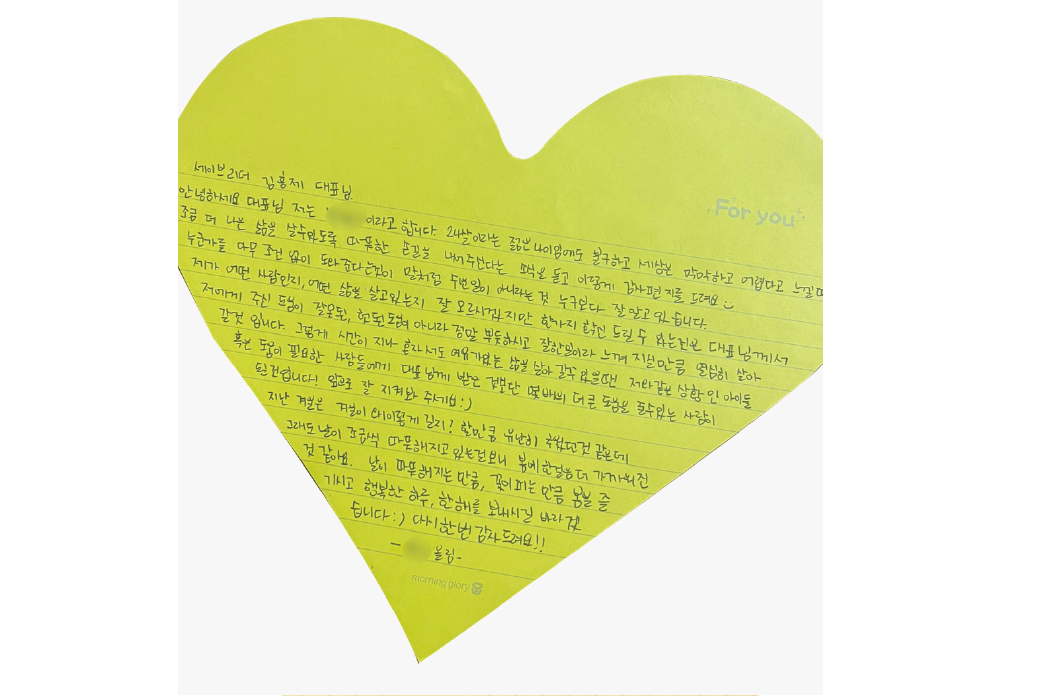 세이브리더 김홍제 대표님
For you
안녕하세요 대표님 저는 이라고 합니다. 24살이라는 젊은 나이임에도 불구하고 세상은 막막하고 어렵다고 느낄때
조금 더 나은 삶을 살수있도록 따뜻한 손길을 내어주신다는 소식을 듣고 이렇게 감사편지를 드려요
누군가를 아무 조건 없이 도와준다는것이 말처럼 쉬운일이 아니라는 것 누구보다 잘 알고 있습니다.
제가 어떤 사람인지, 어떤 삶을 살고있는지 잘 모르시겠지만 한가지 확신 드릴 수 있는 것은 대표님께서
저에게 주신 도움이 잘못된, 헛된도움이 아니라 정말 뿌듯하시고 잘한일이라 느껴 지실만큼 열심히 살아
갈것 입니다. 그렇게 시간이 지나 혼자서도 여유가있는 삶을 살아 갈수 있을땐 저와같은 상황인 아이들
혹은 도움이 필요한 사람들에게 대표님께 받은 것보단 몇배의 더 큰 도움을 줄수있는 사람이
될것입니다! 앞으로 잘 지켜봐 주세요:)
지난 겨울은 겨울이 왜이렇게 길지? 할만큼 유난히 추웠던것 같은데
그래도 날이 조금씩 따뜻해지고 있는걸보니 봄에 한걸음 더 가까워진
것 같아요. 날이 따뜻해지는 만큼, 꽃이 피는 만큼 봄을 즐
기시고 행복한 하루, 한해를 보내시길 바라겠
습니다:) 다시한번 감사드려요!!
- 올림-
morning glory